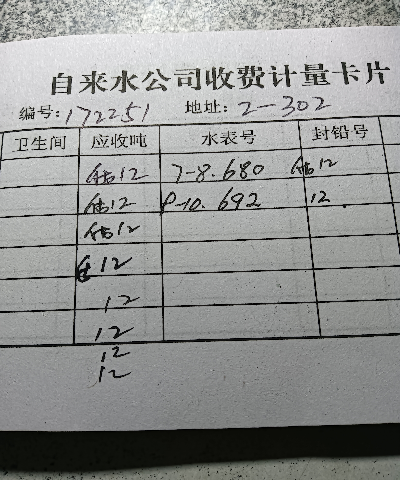 自来水公司收费计量卡片
编号:172251 地址:2-302
卫生间 应收吨 水表号 封铅号
估12 7-8.680 估12
估12 8-10.692 12.
估12
12
12
12
12
12